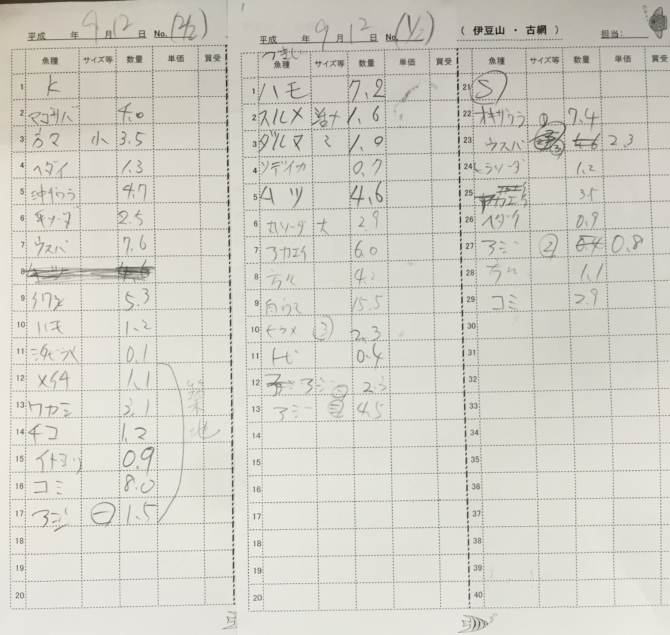 平成 年 9月 12日 No. (2/2)
魚種 サイズ等 数量 単価 買受
1 K
2 マコサバ 4.0
3 方マ 小 3.5
4 ヘダイ 1.3
5 4.7
6 2.5
7 ウスバ 7.6
8
9 イワシ 5.3
10 ハモ 1.2
11 0.1
12 メイチ 1.1
13 ワカシ 3.1
14 チコ 1.2
15 イトヨリ 0.9
16 コミ 8.0
17 アジ 一 1.5
18
19
20
平成 年 9月 12日 No. (1/2)
魚種 サイズ等 数量 単価 買受
1 ハモ 7.2
2 スルメ 1.6
3 ダルマ ミ 1.0
4 ソデイカ 0.7
5 ムツ 4.6
6 丸ソーダ 大 2.9
7 アカエイ 6.0
8
9 15.5
10 ③ 2.3
11 トビ 0.4
12 アジ 二 2.3
13 アジ 三 4.5
14
15
16
17
18
19
20
( 伊豆山 ・ 古網 ) 担当:
魚種 サイズ等 数量 単価 買受
21 S
22 オキザワラ 7.4
23 ウスバ 2.3
24 ヒラソーダ 1.2
25 3.5
26 ヘダイ 0.9
27 アジ ② 0.8
28 1.1
29 コミ 2.9
30
31
32
33
34
35
36
37
38
39
40